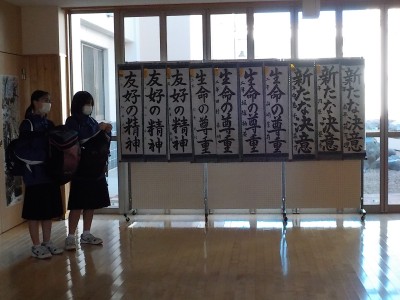 新たな決意
新たな決意
新たな決意
生命の尊重
生命の尊重
生命の尊重
生命の尊重
友好の精神
友好の精神
友好の精神